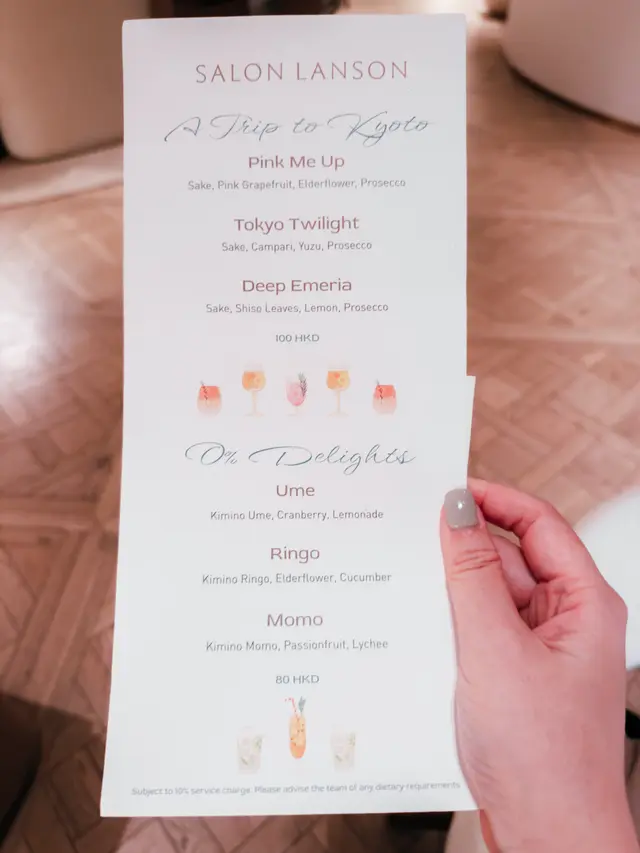 SALON LANSON
A Trip to Kyoto
Pink Me Up
Sake, Pink Grapefruit, Elderflower, Prosecco
Tokyo Twilight
Sake, Campari, Yuzu, Prosecco
Deep Emeria
Sake, Shiso Leaves, Lemon, Prosecco
100 HKD
0% Delights
Ume
Kimino Ume, Cranberry, Lemonade
Ringo
Kimino Ringo, Elderflower, Cucumber
Momo
Kimino Momo, Passionfruit, Lychee
80 HKD
Subject to 10% service charge. Please advise the team of any dietary requirements